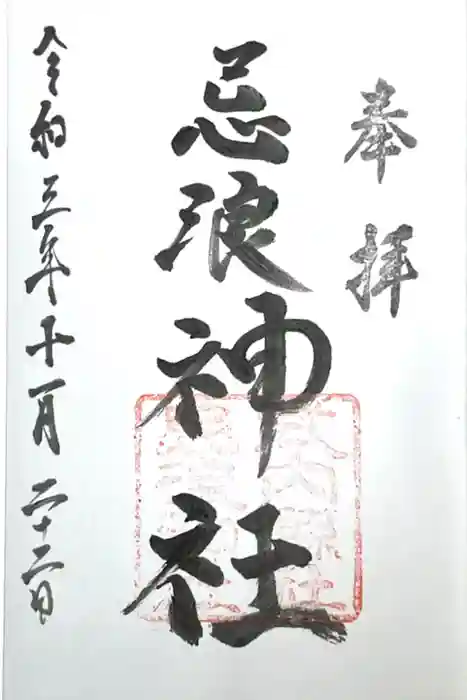 奉拝
忌浪神社
令和三年十一月二十三日